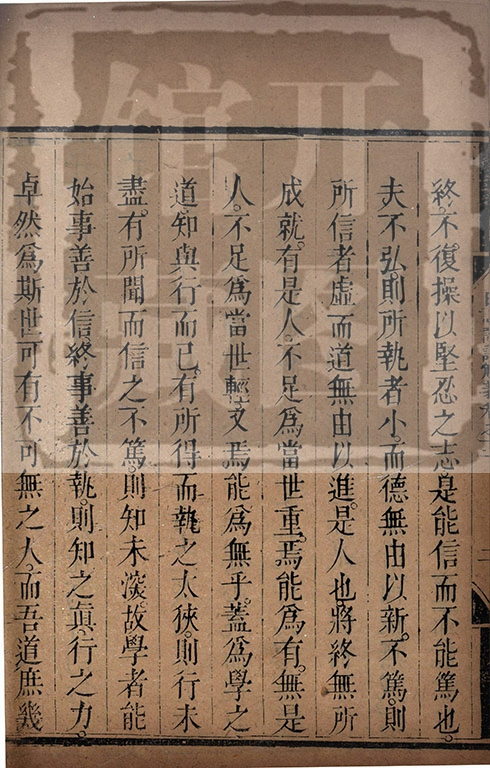 終不復操以堅忍之志是能信而不能篤也。
夫不弘。則所執者小。而德無由以新。不篤。則
所信者虛而道無由以進。是人也將終無所
成就。有是人。不足為當世重。焉能為有。無是
人。不足為當世輕。又焉能為無乎。蓋為學之
道。知與行而已。有所得而執之太狹。則行未
盡。有所聞而信之不篤。則知未深。故學者能
始事善於信終事善於執則知之真。行之力。
卓然為斯世可有不可無之人。而吾道庶幾